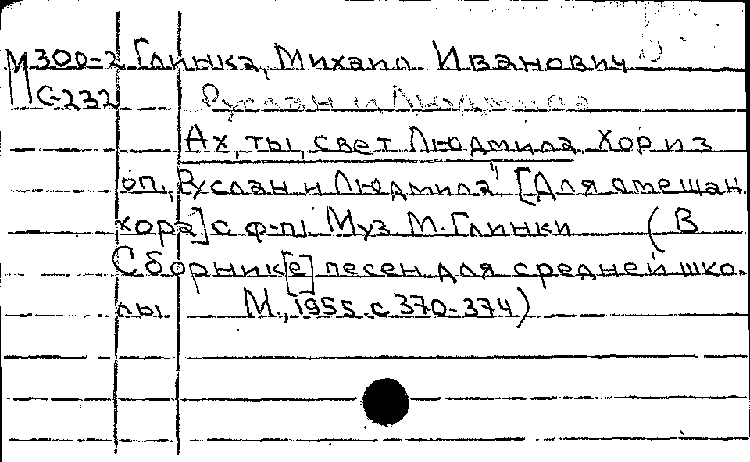 М300-2 Глинка, Михаил Иванович
С-232 Руслан и Людмила
Ах, ты, свет Людмила. Хор из
оп. „Руслан и Людмила" [Для смешан.
хора] с ф-п. Муз М. Глинки (В
Сборник[е] песен для средней шко-
лы М., 1955 с 370-374)